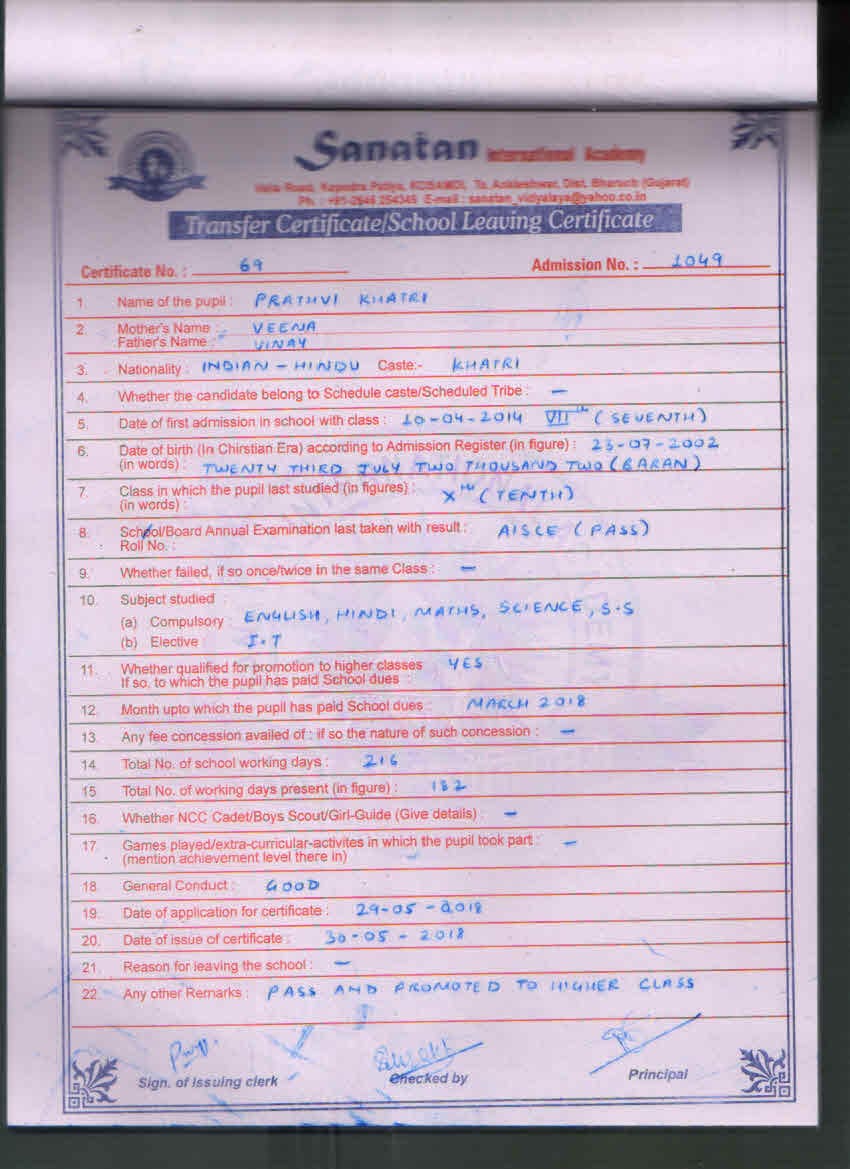 Sanatan International Academy
Valia Road, Kapodra Patiya, KOSAMDI, Ta. Ankleshwar, Dist. Bharuch (Gujarat)
Ph. : +91-2646 254345 E-mail : sanatan_vidyalaya@yahoo.co.in
Transfer Certificate/School Leaving Certificate
Certificate No. : 69 Admission No. : 1049
1. Name of the pupil : PRATHVI KHATRI
2. Mother's Name : VEENA
Father's Name : VINAY
3. Nationality : INDIAN - HINDU Caste:- KHATRI
4. Whether the candidate belong to Schedule caste/Scheduled Tribe : —
5. Date of first admission in school with class : 10-04-2014 VIIth (SEVENTH)
6. Date of birth (In Chirstian Era) according to Admission Register (in figure) : 23-07-2002
(in words) : TWENTY THIRD JULY TWO THOUSAND TWO (BARAN)
7. Class in which the pupil last studied (in figures) : Xth (TENTH)
(in words) :
8. School/Board Annual Examination last taken with result : AISCE (PASS)
Roll No. :
9. Whether failed, if so once/twice in the same Class : —
10. Subject studied :
(a) Compulsory : ENGLISH, HINDI, MATHS, SCIENCE, S.S
(b) Elective I.T
11. Whether qualified for promotion to higher classes YES
If so, to which the pupil has paid School dues :
12. Month upto which the pupil has paid School dues : MARCH 2018
13. Any fee concession availed of : if so the nature of such concession : —
14. Total No. of school working days : 216
15 Total No. of working days present (in figure) : 182
16. Whether NCC Cadet/Boys Scout/Girl-Guide (Give details) : —
17. Games played/extra-curricular-activites in which the pupil took part : —
(mention achievement level there in)
18. General Conduct : GOOD
19. Date of application for certificate : 29-05-2018
20. Date of issue of certificate : 30-05-2018
21. Reason for leaving the school : —
22. Any other Remarks : PASS AND PROMOTED TO HIGHER CLASS
Sign. of issuing clerk Checked by Principal